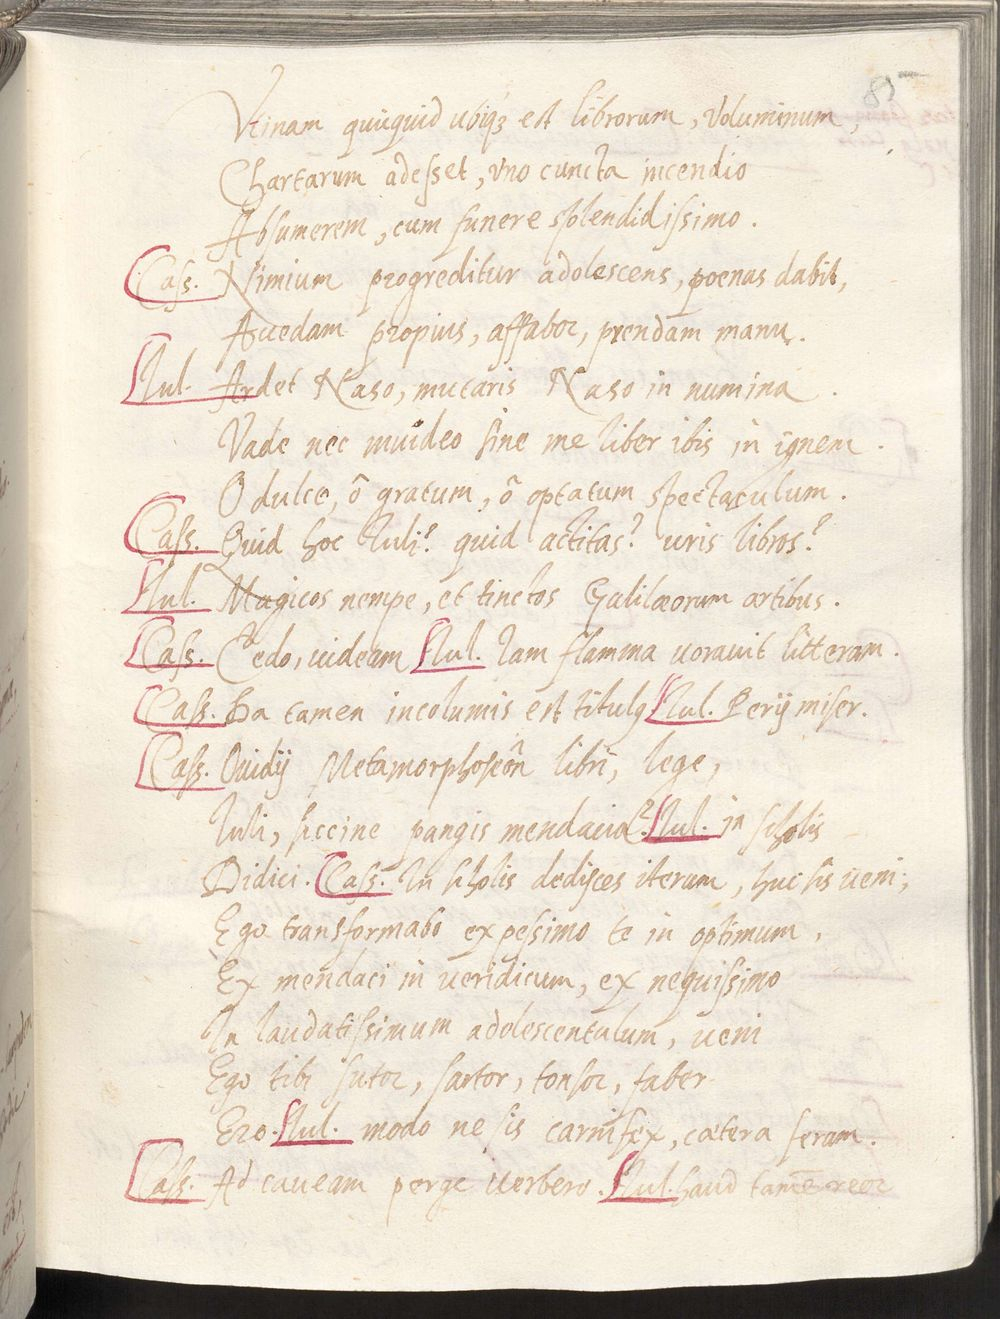 85
Vtinam quicquid ubiqȝ est librorum, Voluminum,
Chartarum adesset, vno cuncta incendio
Absumerem, cum funere splendidissimo.
Cass. Nimium progreditur adolescens, poenas dabit,
Accedam propius, affabor, prendam manu.
Iul. Ardet Naso, mutaris Naso in numina.
Vade nec inuideo sine me liber ibis in ignem.
O dulce, ô gratum, ô optatum spectaculum.
Cass. Quid hoc Iuli? quid actitas? uris libros?
Iul. Magicos nempe, et tinctos Galilæorum artibus.
Cass. Cedo, uideam Iul. Iam flamma uorauit litteram.
Cass. Ha tamen incolumis est titulꝰ Iul. Perij miser.
Cass. Ouidij Metamorphoseôn libri, lege,
Iuli, siccine pangis mendacia? Iul. in scholis
Didici. Cass. In scholis dedisces iterum, huc sis ueni,
Ego transformabo ex pessimo te in optimum,
Ex mendaci in ueridicum, ex nequissimo
In laudatissimum adolescentulum, ueni
Ego tibi sutor, sartor, tonsor, faber
Ero. Iul. modo ne sis carnifex, cætera feram.
Cass. Ad caueam perge uerbero. Iul. haud tamē reor